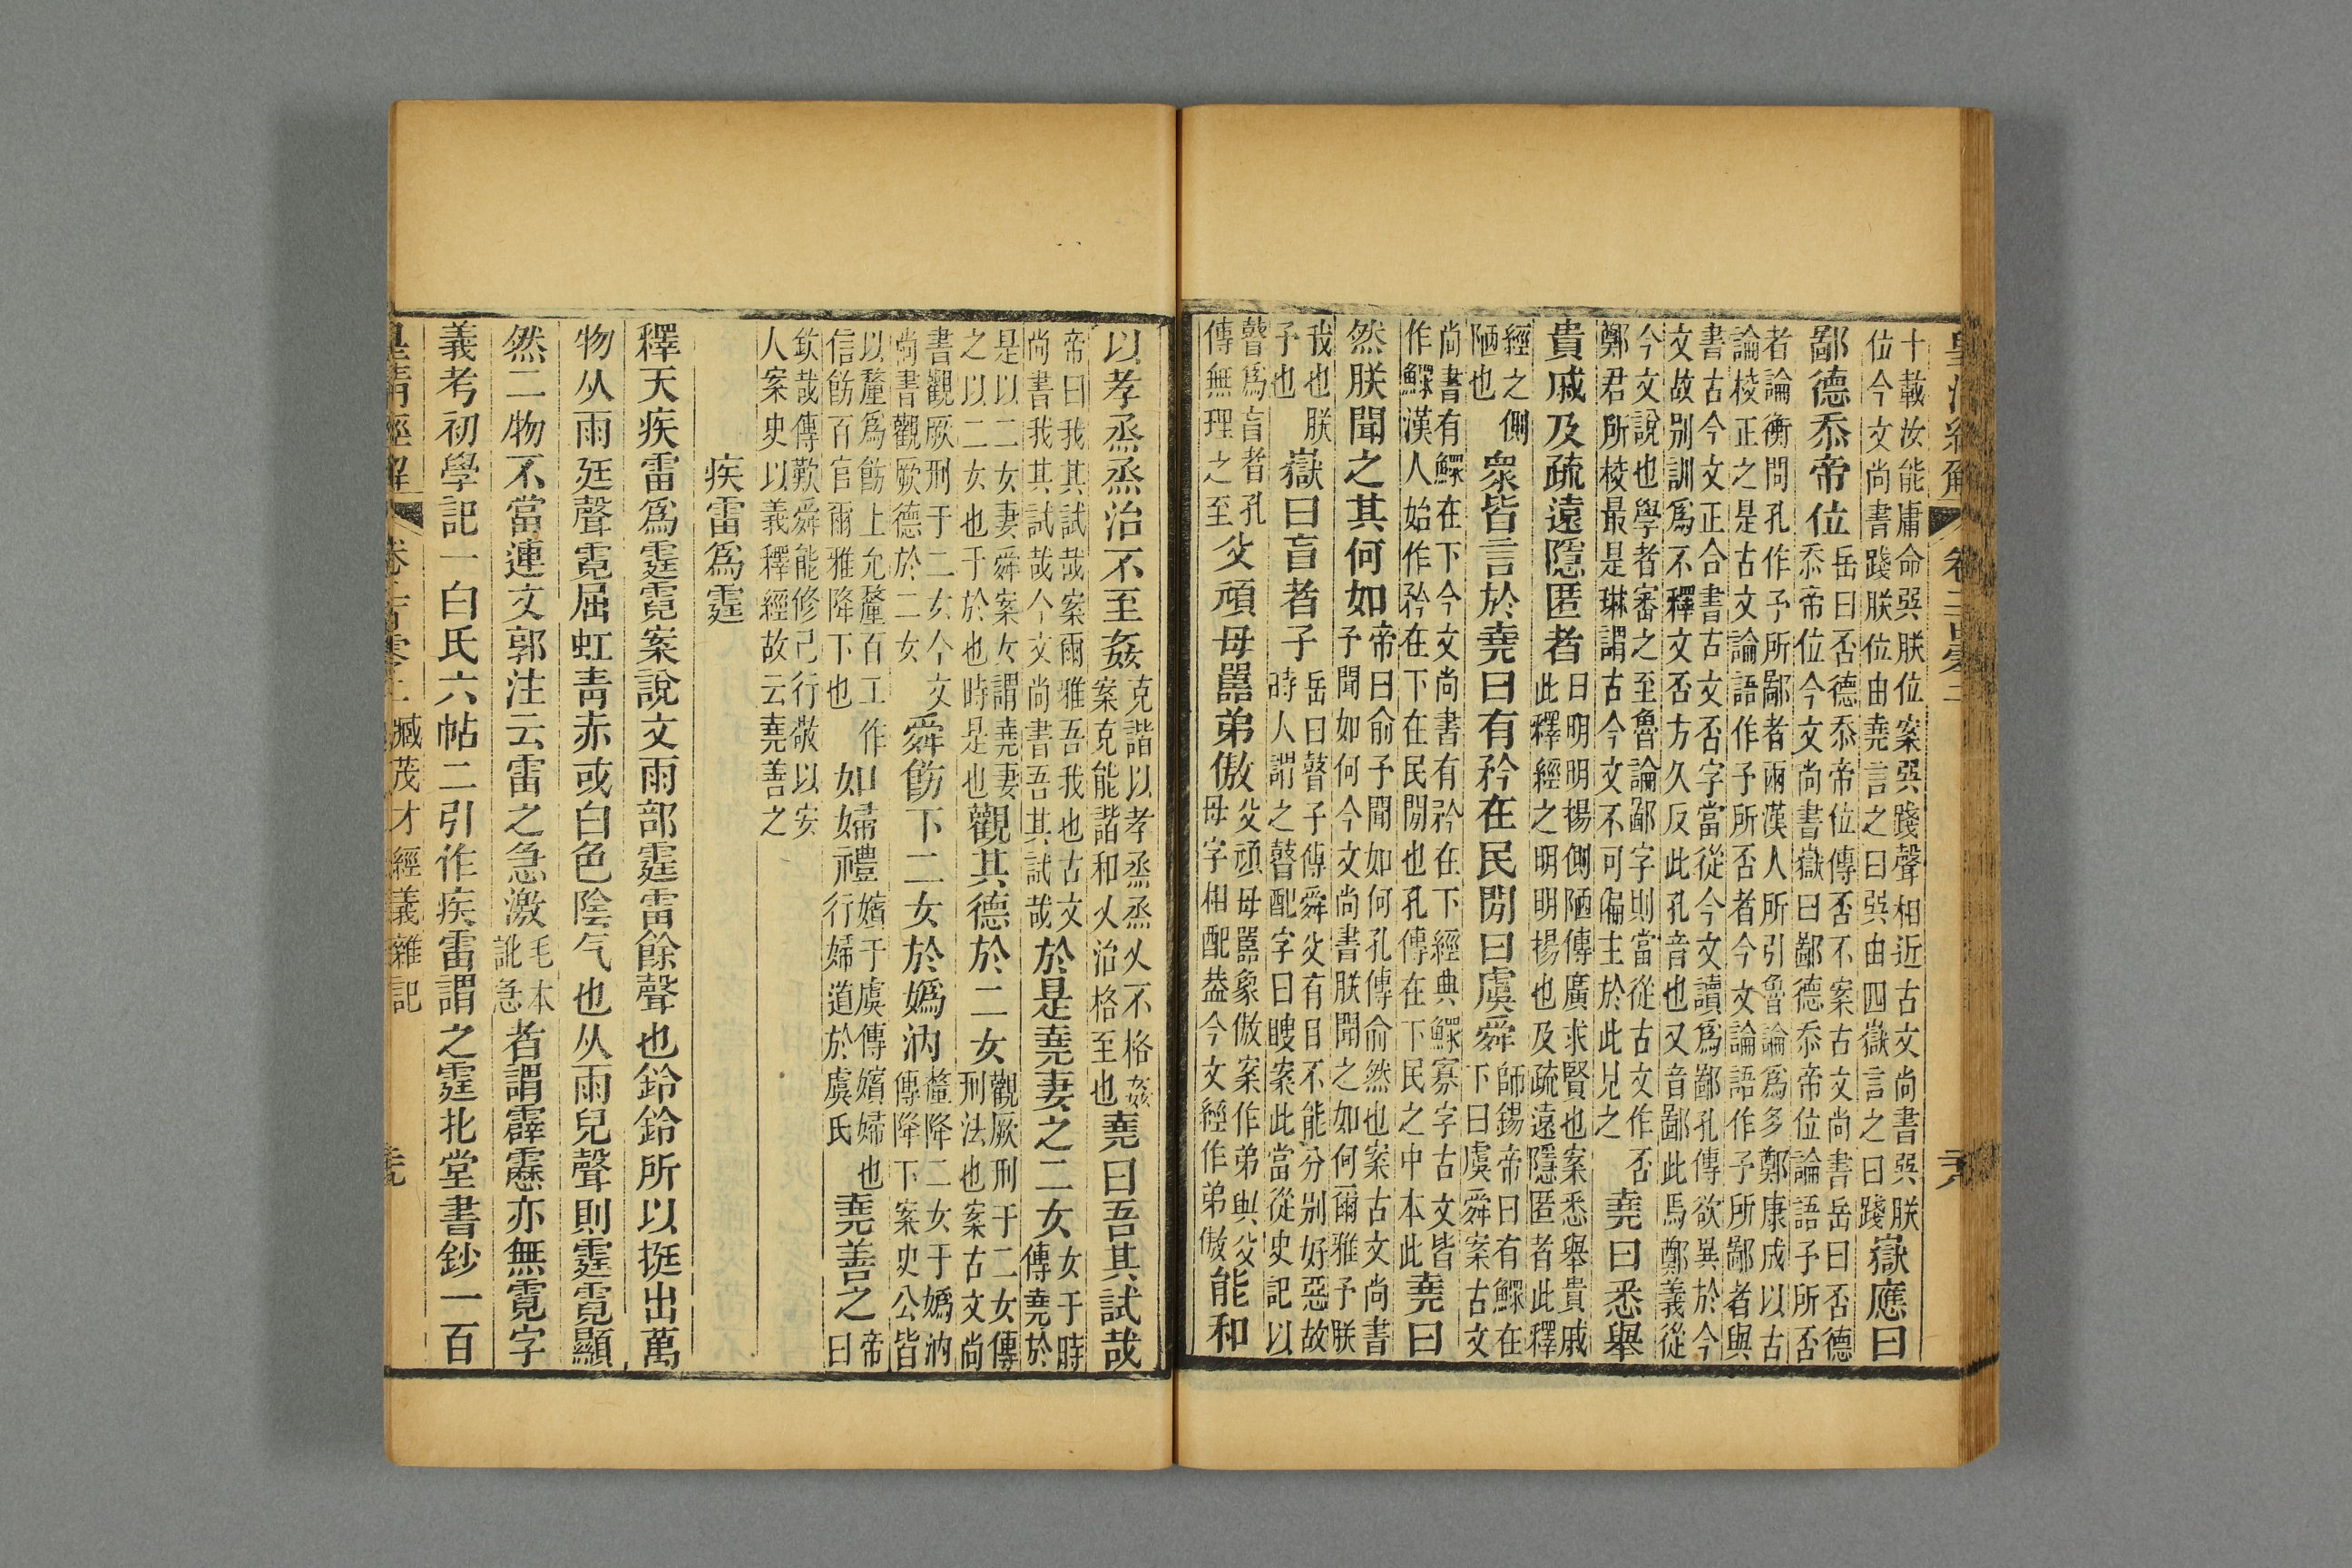 皇清經解 卷二百零二
十載汝能庸命巽朕位案巽踐聲相近古文尚書巽朕位今文尚書踐朕位由堯言之曰巽由四嶽言之曰踐嶽應曰
鄙德忝帝位岳曰否德忝帝位傳否不案古文尚書岳曰否德忝帝位今文尚書嶽曰鄙德忝帝位論語予所否
者論衡問孔作予所鄙者兩漢人所引魯論爲多鄭康成以古論校正之是古文論語作予所否者今文論語作予所鄙者與
書古今文正合書古文否字當從今文讀爲鄙孔傳欲異於今文故别訓爲不釋文否方久反此孔音也又音鄙此馬鄭義從
今文說也學者審之至魯論鄙字則當從古文作否鄭君所校最是琳謂古今文不可偏主於此見之堯曰悉舉
貴戚及疏遠隱匿者曰明明揚側陋傳廣求賢也案悉舉貴戚此釋經之明明揚也及疏遠隱匿者此釋
經之側陋也衆皆言於堯曰有矜在民閒曰虞舜師錫帝曰有鰥在下曰虞舜案古文
尚書有鰥在下今文尚書有矜在下經典鰥寡字古文皆作鰥漢人始作矜在下在民閒也孔傳在下民之中本此堯曰
然朕聞之其何如帝曰俞予聞如何孔傳俞然也案古文尚書予聞如何今文尚書朕聞之如何爾雅予朕
我也朕予也嶽曰盲者子岳曰瞽子傳舜父有目不能分别好惡故時人謂之瞽配字曰瞍案此當從史記以
瞽爲盲者孔傳無理之至父頑母嚚弟傲父頑母嚚象傲案作弟與父母字相配葢今文經作弟傲能和
以孝烝烝治不至姦克諧以孝烝烝乂不格姦案克能諧和乂治格至也堯曰吾其試哉
帝曰我其試哉案爾雅吾我也古文尚書我其試哉今文尚書吾其試哉於是堯妻之二女女于時傳堯於
是以二女妻舜案女謂堯妻之以二女也于於也時是也觀其德於二女觀厥刑于二女傳刑法也案古文尚
書觀厥刑于二女今文尚書觀厥德於二女舜飭下二女於嬀汭釐降二女于嬀汭傳降下案史公皆
以釐爲飭上允釐百工作信飭百官爾雅降下也如婦禮嬪于虞傳嬪婦也行婦道於虞氏堯善之帝曰
欽哉傳歎舜能修己行敬以安人案史以義釋經故云堯善之
疾雷爲霆
釋天疾雷爲霆霓案說文雨部霆雷餘聲也鈴鈴所以挺出萬
物从雨廷聲霓屈虹青赤或白色陰气也从雨兒聲則霆霓顯
然二物不當連文郭注云雷之急激毛本訛急者謂霹靂亦無霓字
義考初學記一白氏六帖二引作疾雷謂之霆北堂書鈔一百
皇清經解 卷二百零二 臧茂才經義雜記